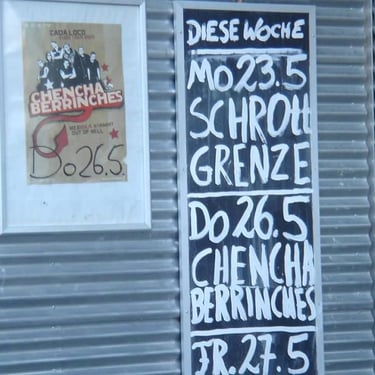 CADA LOCO
CHENCHA
BERRINCHES
OUT OF HELL
Do 26.5.
DIESE WOCHE
MO 23.5
SCHROTT
GRENZE
DO 26.5
CHENCHA
BERRINCHES
FR. 27.5